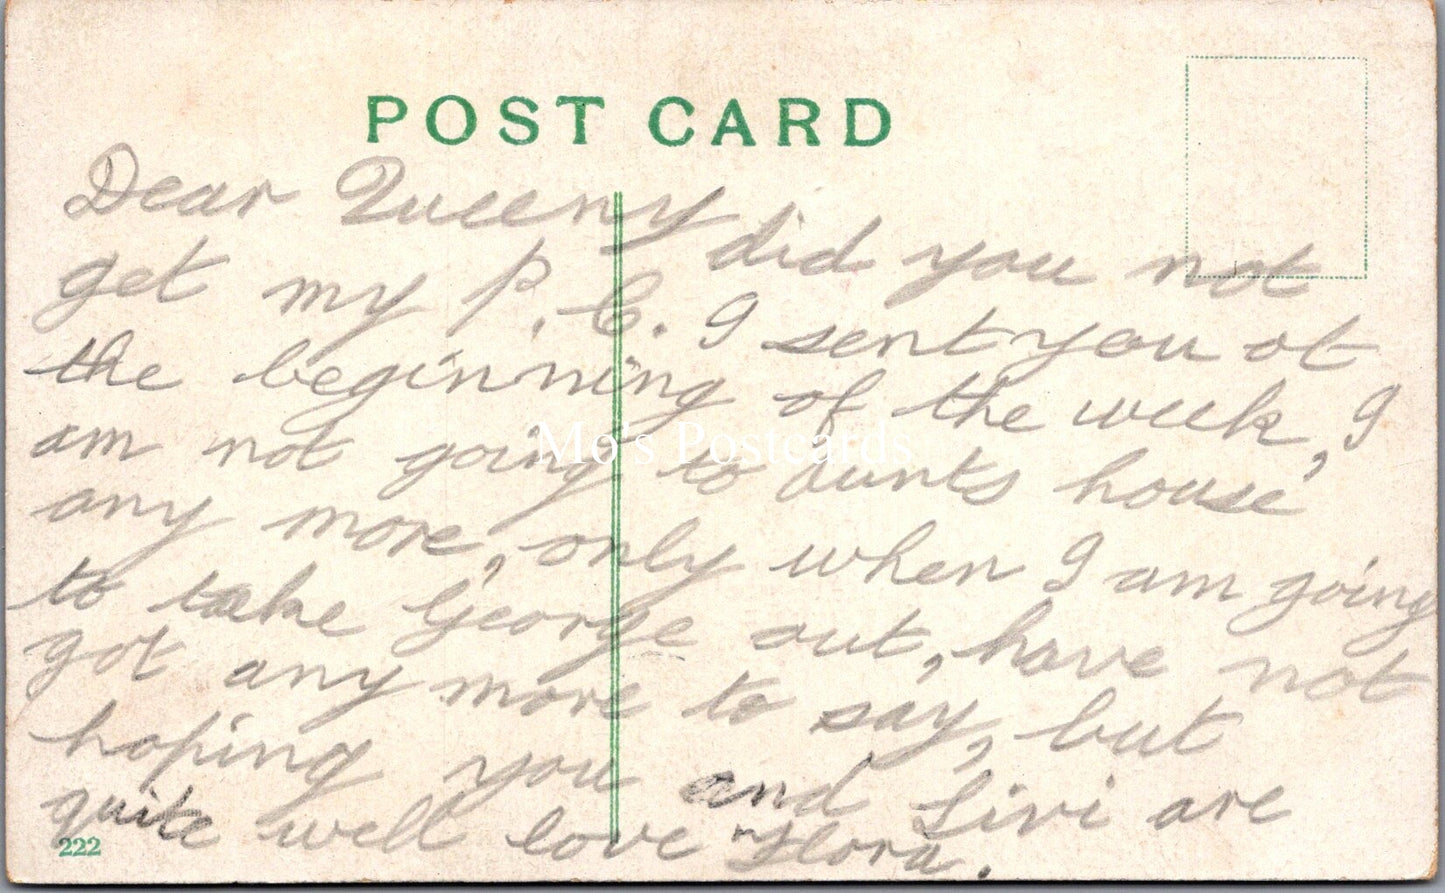 POST CARD
Dear Queeny did you not
get my P.C. I sent you at
the beginning of the week, I
am not going to aunts house
any more, only when I am going
to take George out, have not
got any more to say, but
hoping you and Livi are
quite well love Flora.
222
Mo's Postcards